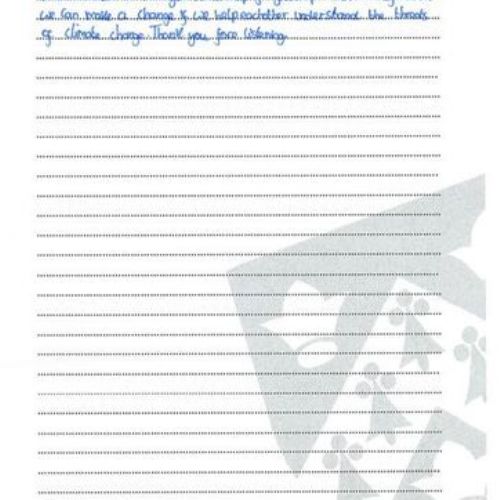 we can make a change if we help eachother understand the threats
of climate change. Thank you forx listening.